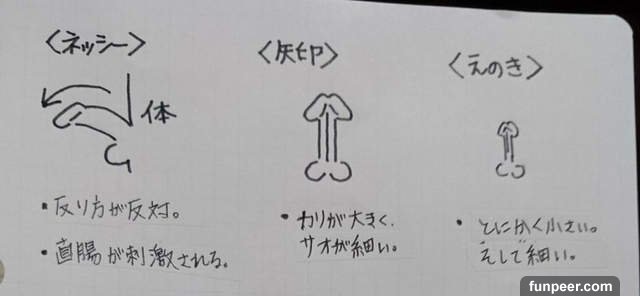 〈ネッシー〉
体
・反り方が反対。
・直腸が刺激される。
〈矢印〉
・カリが大きく、
サオが細い。
〈えのき〉
・とにかく小さい。
そして細い。
funpeer.com